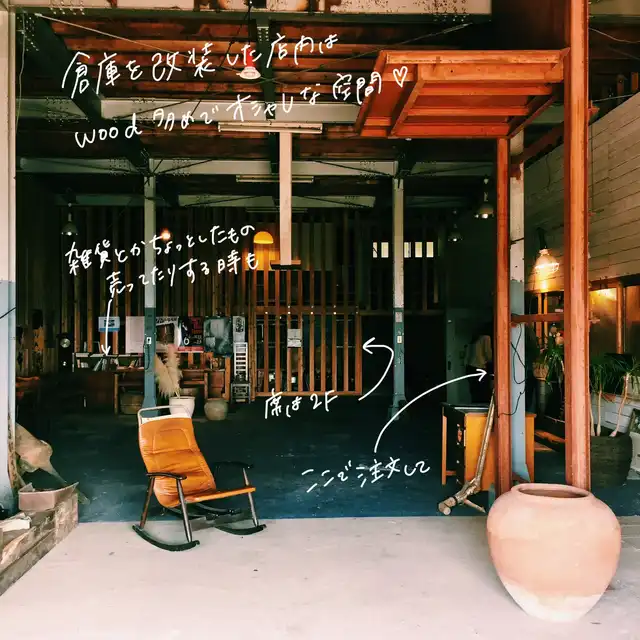 倉庫を改装した店内は
wood多めでオシャレな空間♡
雑貨とかちょっとしたもの
売ってたりする時も
席は2F
ここで注文して